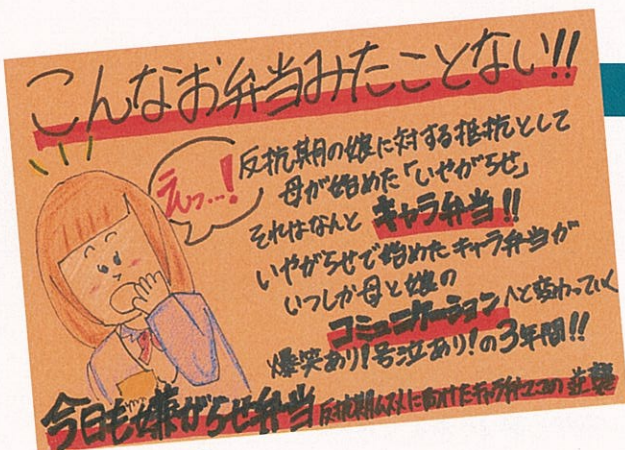 こんなお弁当みたことない!!
えっ…!
反抗期の娘に対する抵抗として
母が始めた「いやがらせ」
それはなんと キャラ弁当!!
いやがらせで始めたキャラ弁当が
いつしか母と娘の
コミュニケーションへと変わっていく
爆笑あり!号泣あり!の3年間!!
今日も嫌がらせ弁当 反抗期ムスメに向けたキャラ弁ママの逆襲